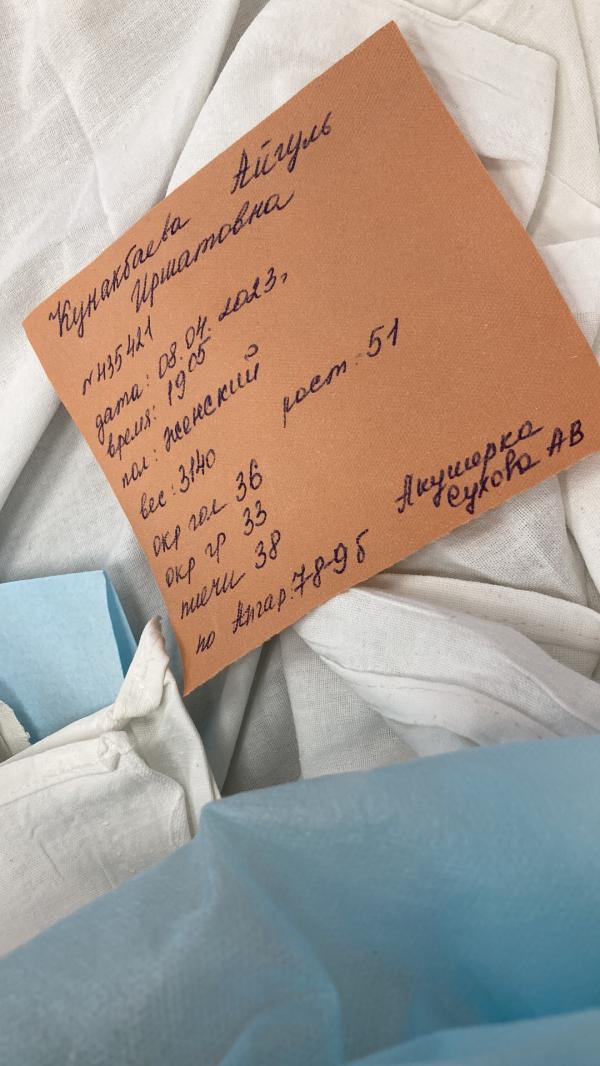 Кунакбаева Айгуль
Иршатовна
№435421
дата: 08.04.2023г
время: 1905
пол: женский
вес: 3140 рост: 51
окр гол 36
окр гр 33
плечи 38
по Апгар: 7-8-9б
Акушерка
Сухова АВ